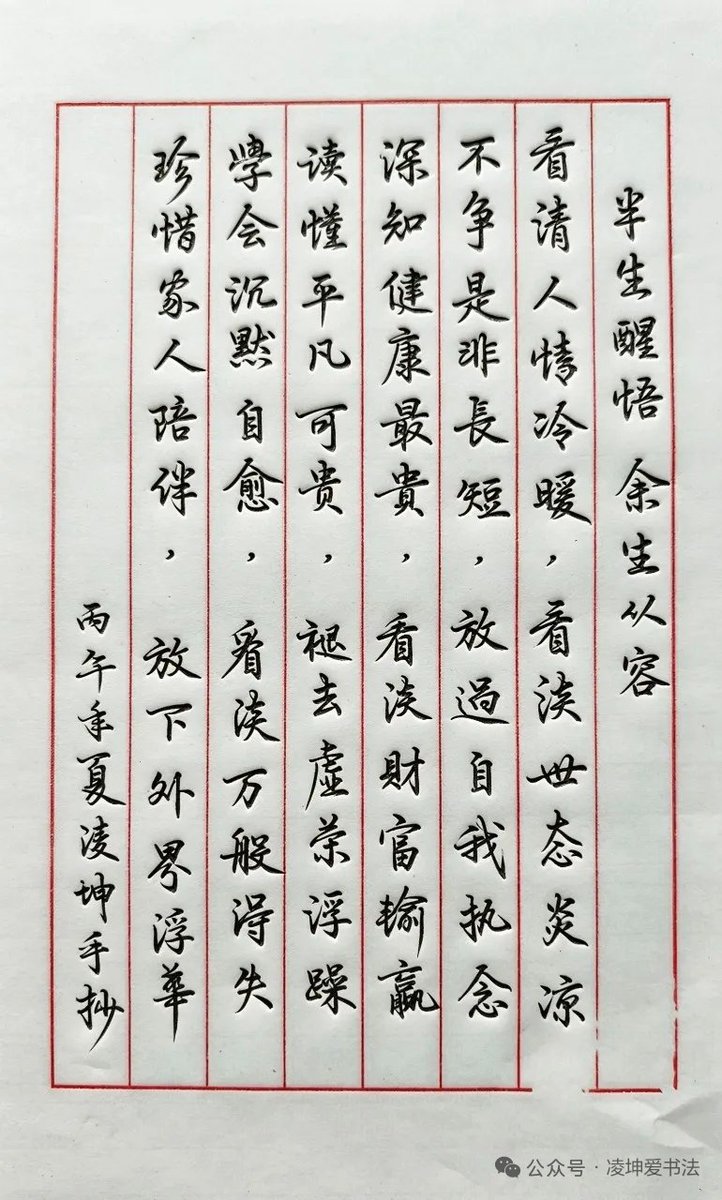 半生醒悟 余生从容
看清人情冷暖，看淡世态炎凉
不争是非長短，放過自我执念
深知健康最貴，看淡財富输赢
读懂平凡可贵，褪去虚荣浮躁
學会沉默自愈，看淡万般得失
珍惜家人陪伴，放下外界浮華
丙午年夏凌坤手抄
公众号·凌坤爱书法